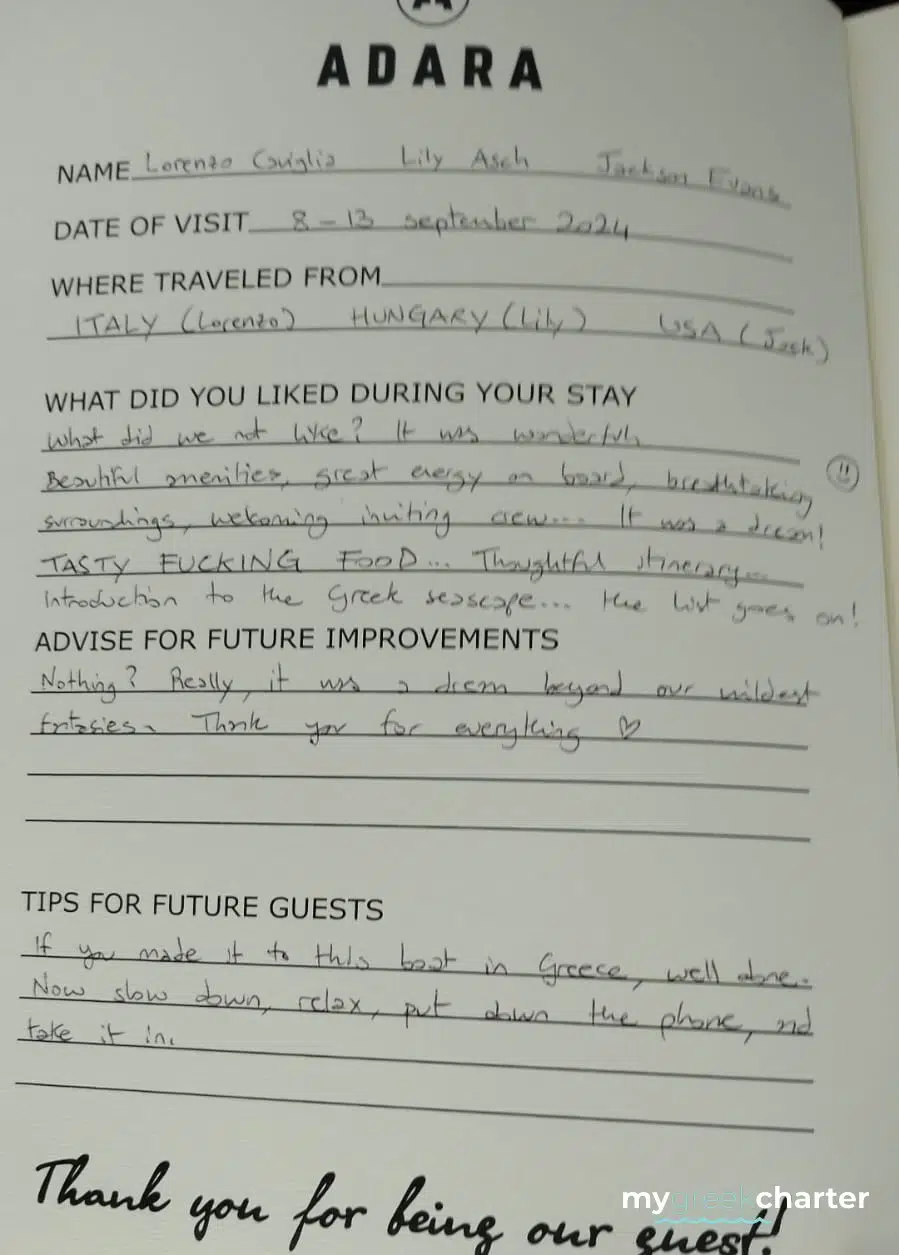 ADARA
NAME Lorenzo Caviglia Lily Asch Jackson Evans
DATE OF VISIT 8-13 september 2024
WHERE TRAVELED FROM
ITALY (Lorenzo) HUNGARY (Lily) USA (Jack)
WHAT DID YOU LIKED DURING YOUR STAY
What did we not like? It was wonderful.
Beautiful amenities, great energy on board, breathtaking
surroundings, welcoming inviting crew... It was a dream!
TASTY FUCKING FOOD... Thoughtful itinerary...
Introduction to the Greek seascape... the list goes on!
ADVISE FOR FUTURE IMPROVEMENTS
Nothing? Really, it was a dream beyond our wildest
fntasies. Thank you for everything ♡
TIPS FOR FUTURE GUESTS
If you made it to this boat in Greece, well done.
Now slow down, relax, put down the phone, nd
take it in.
Thank you for being our guest!
mygreekcharter